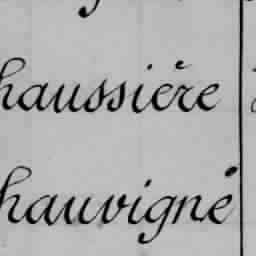 haussière
hauvigné